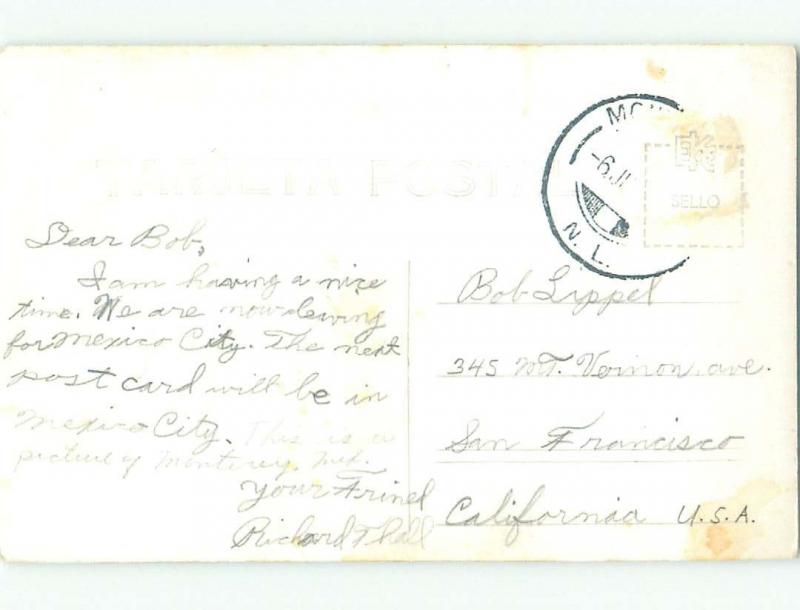 MON
-6.JU
N. L.
EKC
SELLO
TARJETA POSTAL
Dear Bob,
I am having a nice
time. We are now leving
for Mexico City. The next
post card will be in
Mexico City. This is a
picture of Monterey, Mex.
Your Frinel
Richard Thall
Bob Lippel
345 Mt. Vernon ave.
San Francisco
California U.S.A.